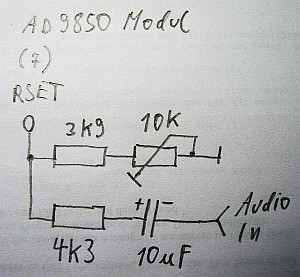 AD9850 Modul
(7)
RSET
3K9
10K
+
-
4K3
10uF
Audio
In